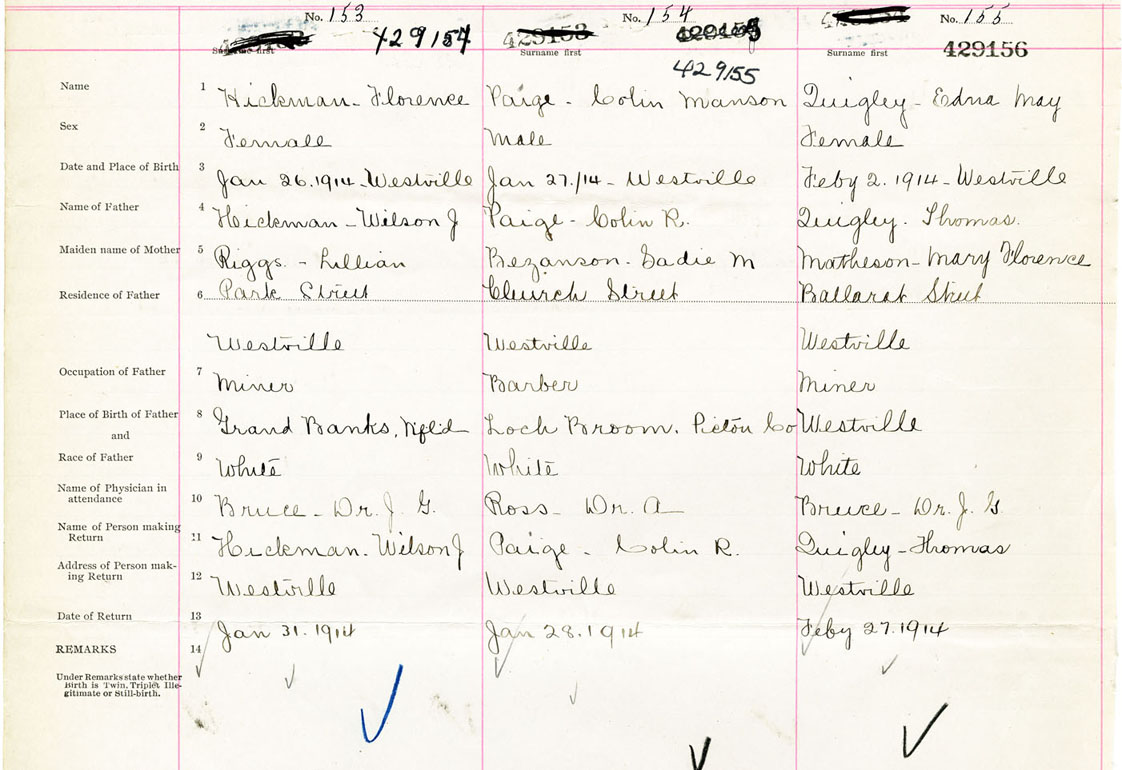 No. 153 No. 154 No. 155
429154 429156
Surname first Surname first Surname first
429155
Name 1 Hickman - Florence Paige - Colin Manson Quigley - Edna May
Sex 2 Female Male Female
Date and Place of Birth 3 Jan 26.1914 - Westville Jan 27./14 - Westville Feby 2. 1914 - Westville
Name of Father 4 Hickman - Wilson J Paige - Colin R. Quigley. Thomas.
Maiden name of Mother 5 Riggs - Lillian Bezanson - Sadie M Matheson - Mary Florence
Residence of Father 6 Park Street Church Street Ballarat Street
Westville Westville Westville
Occupation of Father 7 Miner Barber Miner
Place of Birth of Father 8 Grand Banks, Nfld Loch Broom. Pictou Co Westville
and
Race of Father 9 White White White
Name of Physician in
attendance 10 Bruce - Dr. J. G. Ross - Dr. A Bruce - Dr. J. G
Name of Person making
Return 11 Hickman. Wilson J Paige - Colin R. Quigley - Thomas
Address of Person mak-
ing Return 12 Westville Westville Westville
Date of Return 13 Jan 31. 1914 Jan 28. 1914 Feby 27. 1914
REMARKS 14
Under Remarks state whether
Birth is Twin, Triplet Ille-
gitimate or Still-birth.